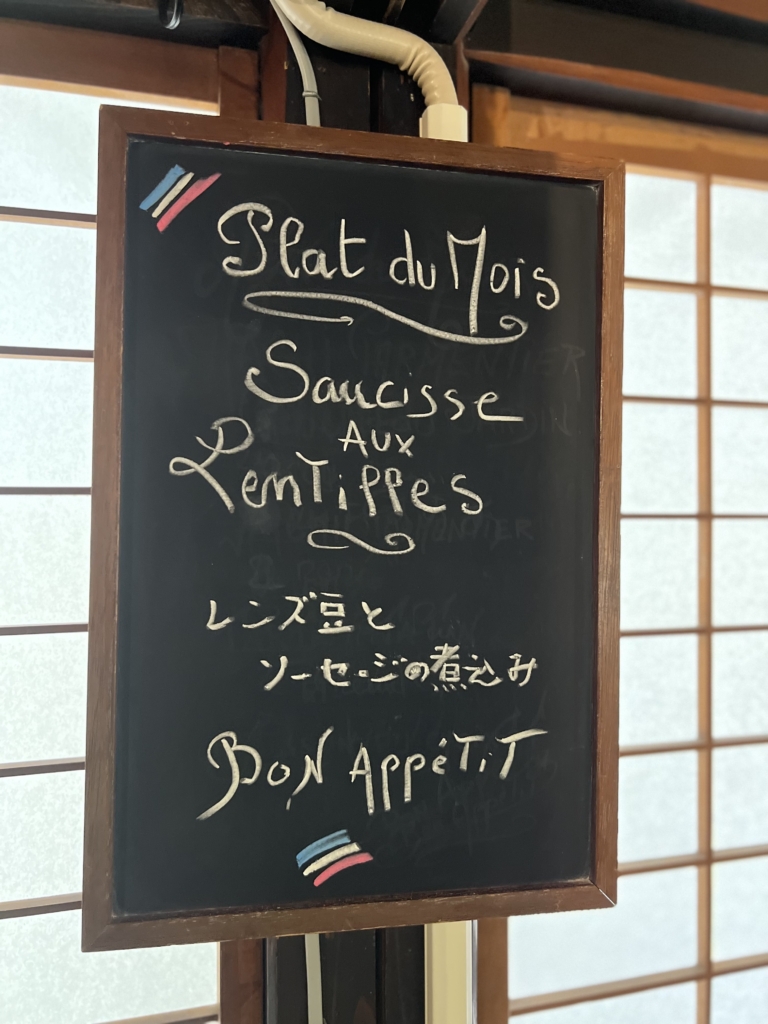 Plat du Mois
Saucisse
AUX
Lentilles
レンズ豆と
ソーセージの煮込み
BON AppéTiT